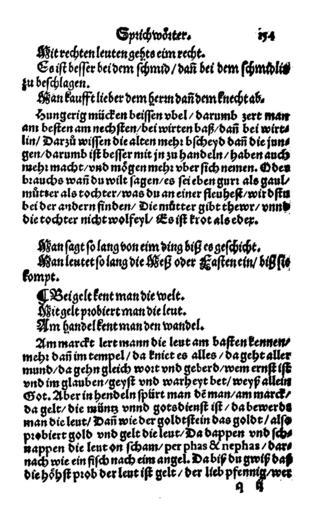 Sprichwörter. 154
Mit rechten leuten gehts eim recht.
Es ist besser bei dem schmid/ dañ bei dem schmidlin
zu beschlagen.
Man kaufft lieber dem herrn dañ dem knecht ab.
Hungerig mücken beissen vbel/ darumb zert man
am besten am nechsten/ bei wirten baß/ dañ bei wirt-
lin/ Darzů wissen die alten mehr bscheyd dañ die jun-
gen/ darumb ist besser mit jn zu handeln/ haben auch
mehr macht/ vnd mögen mehr vber sich nemen. Oder
brauchs wañ du wilt sagen/ es sei eben gurr als gaul/
můtter als tochter/ was du an einer fleuhest/ wirdstu
bei der andern finden/ Die můtter gibt thewr/ vnnd
die tochter nicht wolfeyl/ Es ist krot als eder.
Man sagt so lang von eim ding biß es geschicht.
Man leutet so lang die Meß oder Fasten ein/ biß sie
kompt.
¶ Bei gelt kent man die welt.
Mit gelt probiert man die leut.
Am handel kent man den wandel.
Am marckt lert mann die leut am basten kennen/
mehr dañ im tempel/ da kniet es alles/ da geht aller
mund/ da gehn gleich wort vnd geberd/ wem ernst ist
vnd im glauben/ geyst vnd warheyt bet/ weyß allein
Got. Aber in hendeln spürt man dē man/ am marck/
da gelt/ die müntz vnnd gotsdienst ist/ da bewerdt
man die leut/ Dañ wie der goldtstein das goldt/ also
probiert gold vnd gelt die leut/ Da dappen vnd sch-
nappen die leut on scham/ per phas & nephas/ dar-
nach wie ein fisch nach eim angel. Da biß du gwiß daß
die höhst prob der leut ist gelt/ der lieb pfennig/ wer
q q